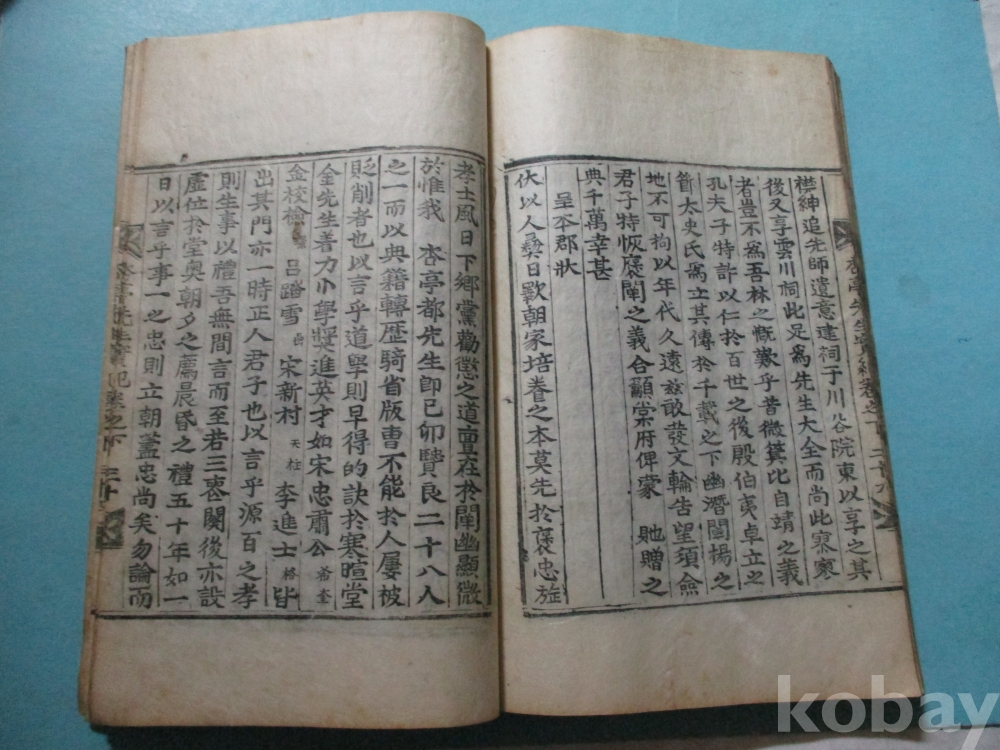 襟紳追先師遺意建祠于川谷院東以享之其
後又享雲川祠此足爲先生大全而尚此寥寥
者豈不爲吾林之慨歎乎昔微箕比自靖之義
孔夫子特許以仁於百世之後殷伯夷卓立之
節太史氏爲立其傳於千載之下幽潛闡揚之
地不可拘以年代久遠玆敢發文輪告望須僉
君子特恢處闡之義合籲棠府俾蒙 貤贈之
典千萬幸甚
呈本郡狀
伏以人彝日斁朝家培養之本莫先於褒忠旌
孝士風日下鄉黨勸懲之道亶在於闡幽顯微
於惟我 杏亭都先生卽己卯賢良二十八人
之一而以典籍轉歷騎省版曺不能於人屢被
貶削者也以言乎道學則早得的訣於寒暄堂
金先生着力小學奬進英才如宋忠肅公希奎
金校檢 呂踏雪 宋新村天柱 李進士 皆
出其門亦一時正人君子也以言乎源百之孝
則生事以禮吾無間言而至若三喪闋後亦設
虛位於堂奧朝夕之薦晨昏之禮五十年如一
日以言乎事一之忠則立朝藎忠尚矣勿論而
杏亭先生實紀卷之下
kobay